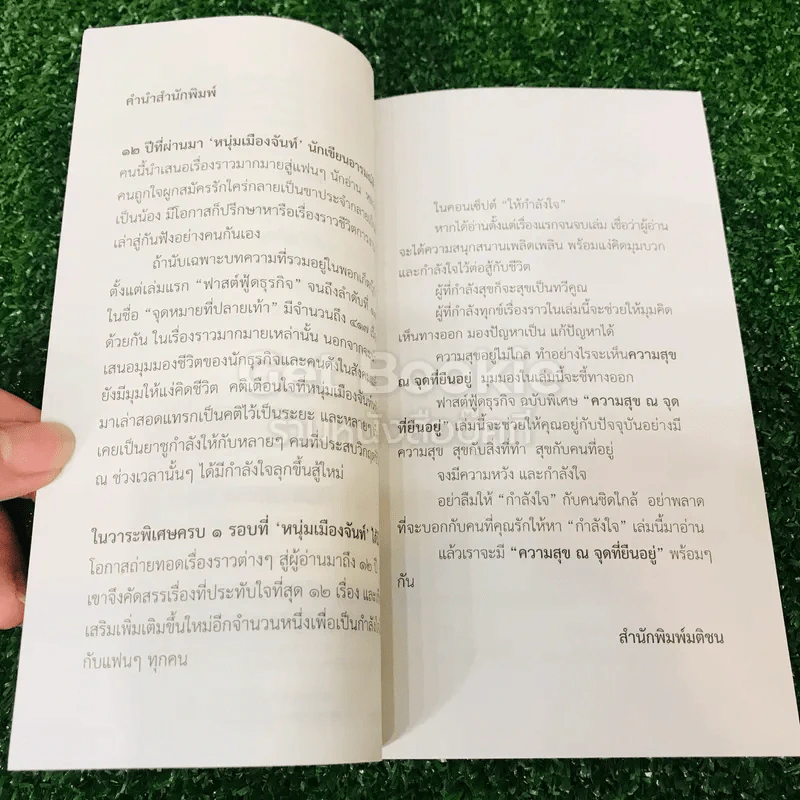 คำนำสำนักพิมพ์
๑๒ ปีที่ผ่านมา ‘หนุ่มเมืองจันท์’ นักเขียนอารมณ์ดี
คนนี้นำเสนอเรื่องราวมากมายสู่แฟนๆ นักอ่าน
คนถูกใจผูกสมัครรักใคร่กลายเป็นขาประจำกลายเป็น
เป็นน้อง มีโอกาสก็ปรึกษาหารือเรื่องราวชีวิตการงาน
เล่าสู่กันฟังอย่างคนกันเอง
ถ้านับเฉพาะบทความที่รวมอยู่ในพอกเก็ตบุ๊ก
ตั้งแต่เล่มแรก “ฟาสต์ฟู้ดธุรกิจ” จนถึงลำดับที่
ในชื่อ “จุดหมายที่ปลายเท้า” มีจำนวนถึง ๔๑๗
ด้วยกัน ในเรื่องราวมากมายเหล่านั้น นอกจากจะ
เสนอมุมมองชีวิตของนักธุรกิจและคนดังในสังคม
ยังมีมุมให้แง่คิดชีวิต คติเตือนใจที่หนุ่มเมืองจันท์
มาเล่าสอดแทรกเป็นคติไว้เป็นระยะ และหลายๆ
เคยเป็นยาชูกำลังให้กับหลายๆ คนที่ประสบวิกฤต
ณ ช่วงเวลานั้นๆ ได้มีกำลังใจลุกขึ้นสู้ใหม่
ในวาระพิเศษครบ ๑ รอบที่ ‘หนุ่มเมืองจันท์’ ได้
โอกาสถ่ายทอดเรื่องราวต่างๆ สู่ผู้อ่านมาถึง ๑๒ ปี
เขาจึงคัดสรรเรื่องที่ประทับใจที่สุด ๑๒ เรื่อง และ
เสริมเพิ่มเติมขึ้นใหม่อีกจำนวนหนึ่งเพื่อเป็นกำลังใจ
กับแฟนๆ ทุกคน
ในคอนเซ็ปต์ “ให้กำลังใจ”
หากได้อ่านตั้งแต่เรื่องแรกจนจบเล่ม เชื่อว่าผู้อ่าน
จะได้ความสนุกสนานเพลิดเพลิน พร้อมแง่คิดมุมบวก
และกำลังใจไว้ต่อสู้กับชีวิต
ผู้ที่กำลังสุขก็จะสุขเป็นทวีคูณ
ผู้ที่กำลังทุกข์เรื่องราวในเล่มนี้จะช่วยให้มุมคิด
เห็นทางออก มองปัญหาเป็น แก้ปัญหาได้
ความสุขอยู่ไม่ไกล ทำอย่างไรจะเห็นความสุข
ณ จุดที่ยืนอยู่ มุมมองในเล่มนี้จะชี้ทางออก
ฟาสต์ฟู้ดธุรกิจ ฉบับพิเศษ “ความสุข ณ จุด
ที่ยืนอยู่” เล่มนี้จะช่วยให้คุณอยู่กับปัจจุบันอย่างมี
ความสุข สุขกับสิ่งที่ทำ สุขกับคนที่อยู่
จงมีความหวัง และกำลังใจ
อย่าลืมให้ “กำลังใจ” กับคนชิดใกล้ อย่าพลาด
ที่จะบอกกับคนที่คุณรักให้หา “กำลังใจ” เล่มนี้มาอ่าน
แล้วเราจะมี “ความสุข ณ จุดที่ยืนอยู่” พร้อมๆ
กัน
สำนักพิมพ์มติชน
Get Bookie